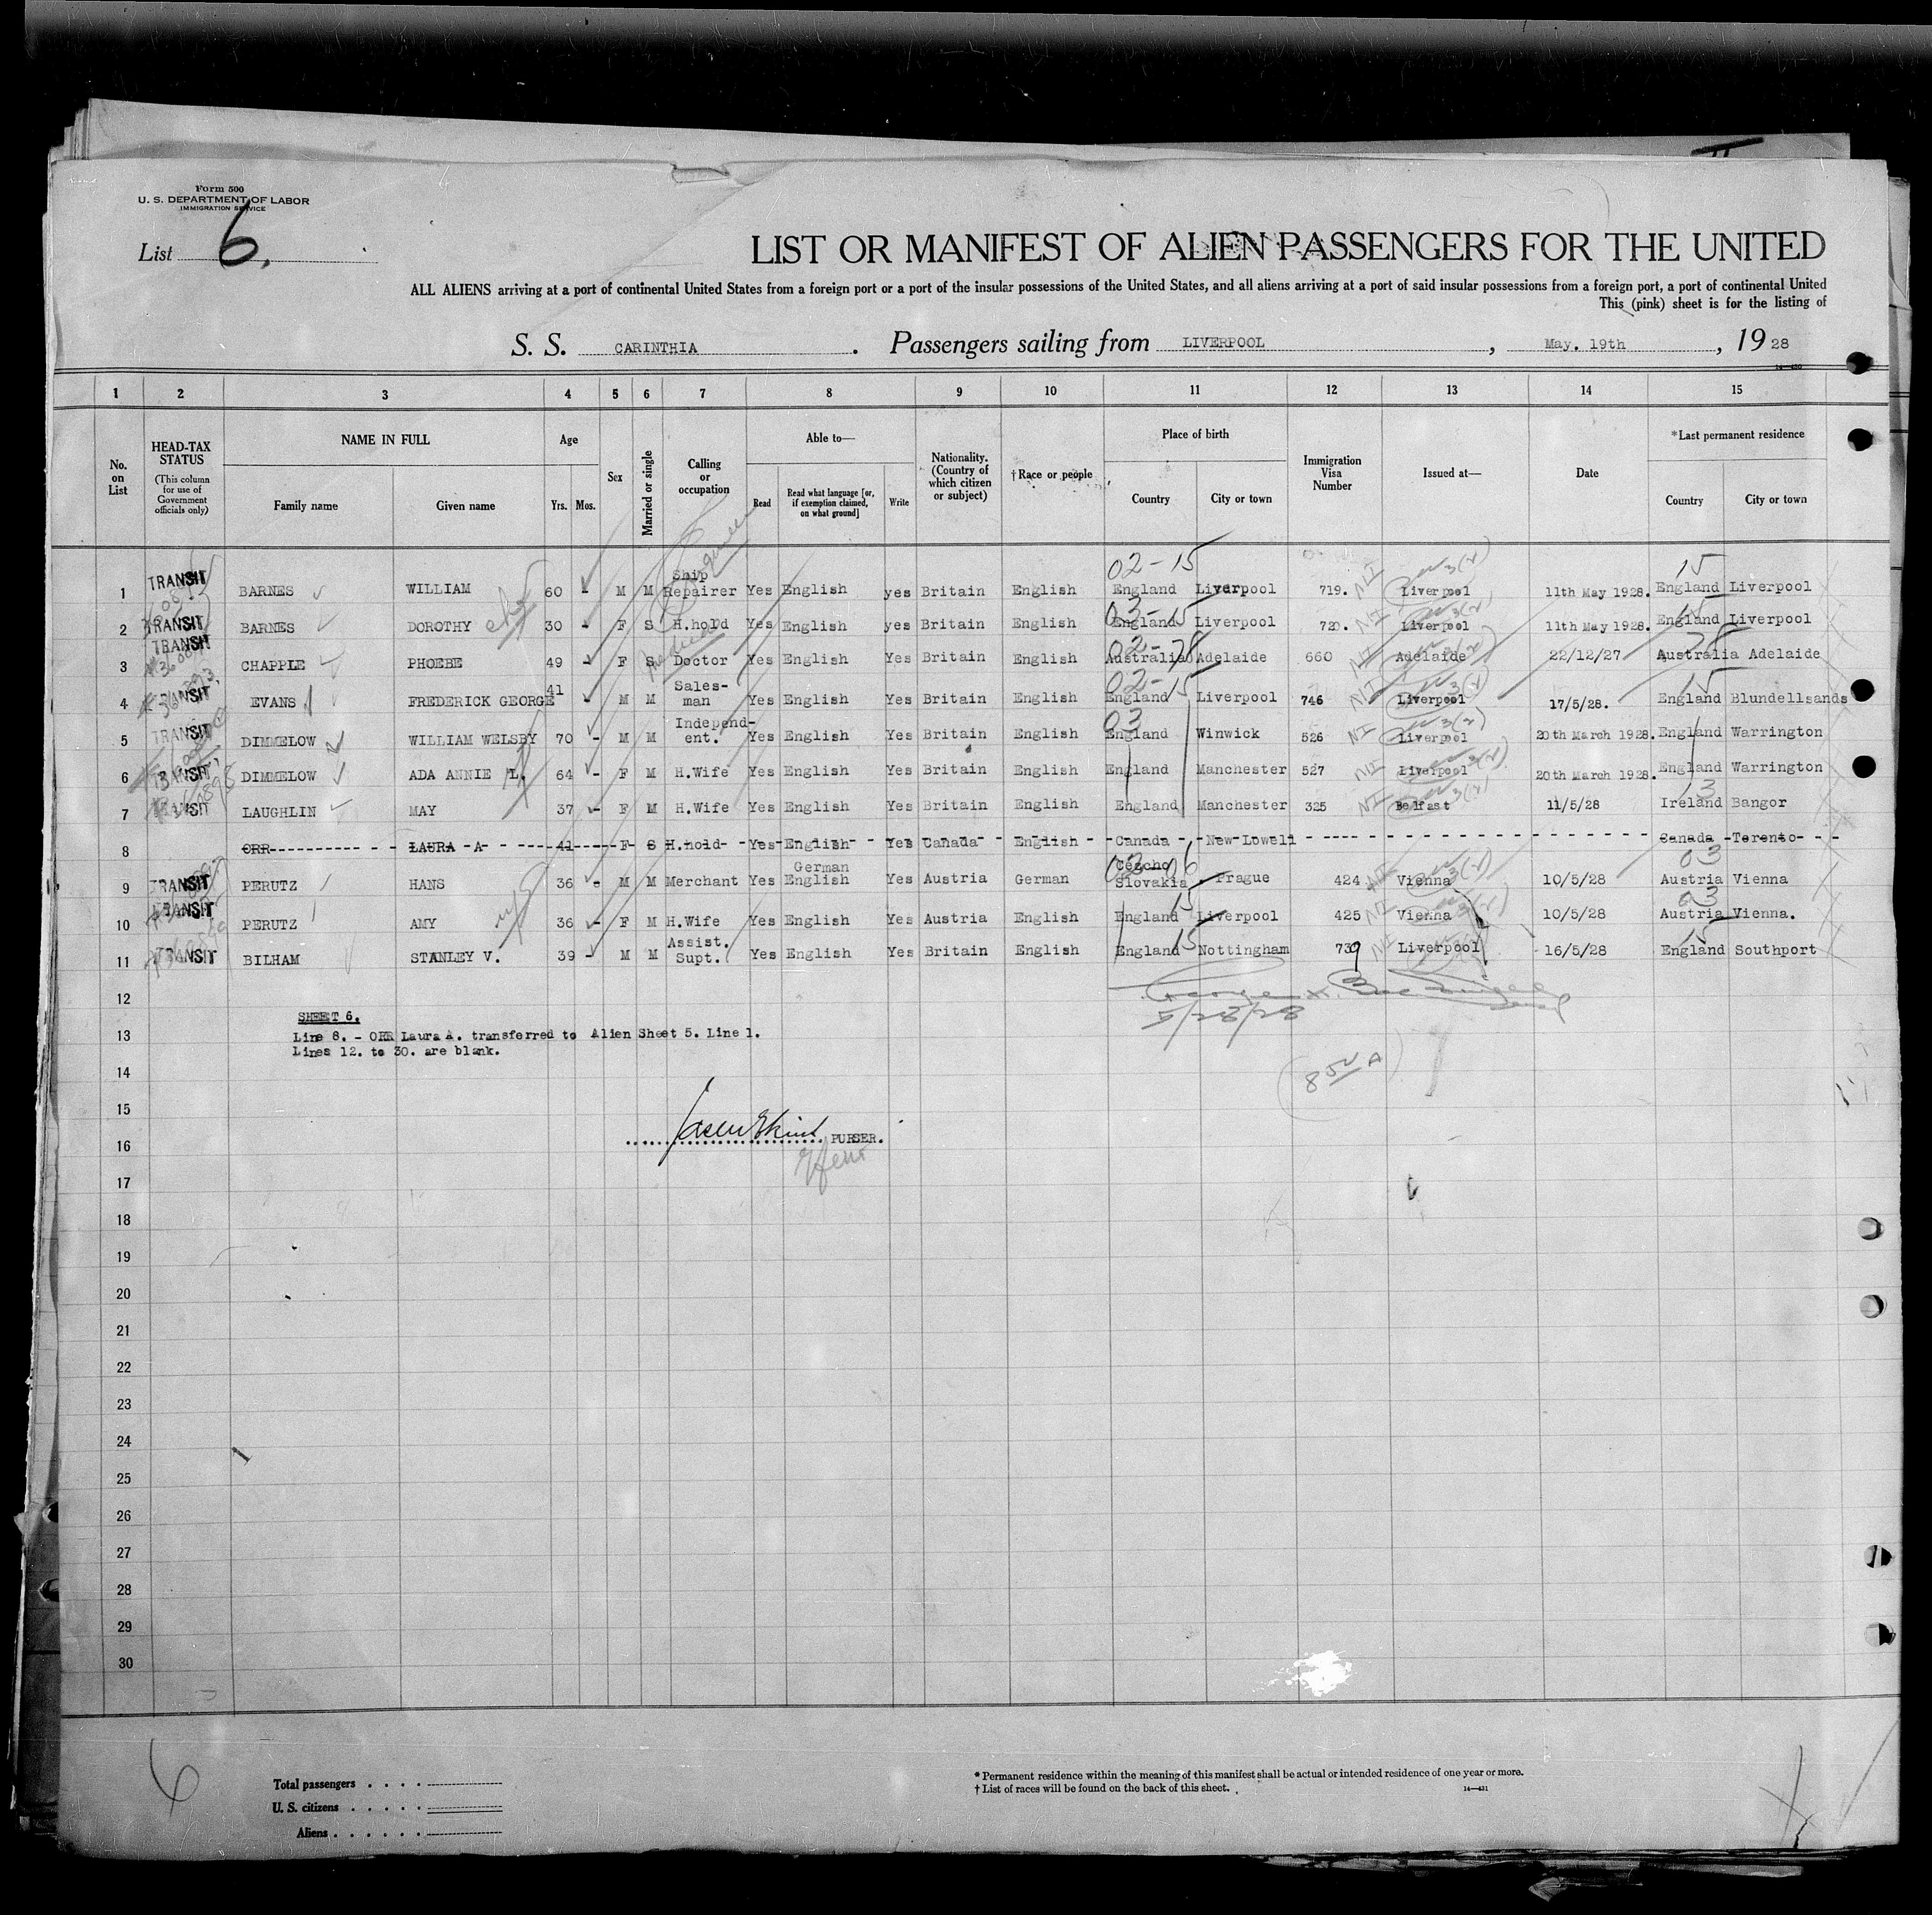 Form 500
U. S. DEPARTMENT OF LABOR
IMMIGRATION SERVICE
List 6.
LIST OR MANIFEST OF ALIEN PASSENGERS FOR THE UNITED
ALL ALIENS arriving at a port of continental United States from a foreign port or a port of the insular possessions of the United States, and all aliens arriving at a port of said insular possessions from a foreign port, a port of continental United
This (pink) sheet is for the listing of
S. S. CARINTHIA. Passengers sailing from LIVERPOOL, May. 19th, 19 28
14—430
1 2 3 4 5 6 7 8 9 10 11 12 13 14 15
No. on List
HEAD-TAX STATUS (This column for use of Government officials only)
NAME IN FULL
Family name
Given name
Age
Yrs. Mos.
Sex
Married or single
Calling or occupation
Able to—
Read
Read what language [or, if exemption claimed, on what ground]
Write
Nationality. (Country of which citizen or subject)
†Race or people
Place of birth
Country
City or town
Immigration Visa Number
Issued at—
Date
*Last permanent residence
Country
City or town
02-15 15
1 TRANSIT BARNES WILLIAM 60 - M M Ship Repairer Yes English yes Britain English England Liverpool 719. NI Liverpool 11th May 1928. England Liverpool
03-15 15
2 TRANSIT BARNES DOROTHY 30 - F S H.hold Yes English yes Britain English England Liverpool 720. NI Liverpool 11th May 1928. England Liverpool
02-78 78
3 TRANSIT CHAPPLE PHOEBE 49 - F S Doctor Yes English Yes Britain English Australia Adelaide 660 NI Adelaide 22/12/27 Australia Adelaide
02-15 15
4 TRANSIT EVANS FREDERICK GEORGE 41 - M M Sales-man Yes English Yes Britain English England Liverpool 746 NI Liverpool 17/5/28. England Blundellsands
03
5 TRANSIT DIMMELOW WILLIAM WELSBY 70 - M M Independ-ent. Yes English Yes Britain English England Winwick 526 NI Liverpool 20th March 1928. England Warrington
6 TRANSIT DIMMELOW ADA ANNIE L. 64 - F M H.Wife Yes English Yes Britain English England Manchester 527 NI Liverpool 20th March 1928. England Warrington
13
7 TRANSIT LAUGHLIN MAY 37 - F M H.Wife Yes English Yes Britain English England Manchester 325 NI Belfast 11/5/28 Ireland Bangor
8 ORR LAURA A 41 F S H.hold Yes English Yes Canada English Canada New Lowell Canada Toronto
03
9 TRANSIT PERUTZ HANS 36 - M M Merchant Yes German English Yes Austria German Czecho Slovakia Prague 424 NI Vienna 10/5/28 Austria Vienna
15 03
10 TRANSIT PERUTZ AMY 36 - F M H.Wife Yes English Yes Austria English England Liverpool 425 NI Vienna 10/5/28 Austria Vienna.
15 15
11 TRANSIT BILHAM STANLEY V. 39 - M M Assist. Supt. Yes English Yes Britain English England Nottingham 739 NI Liverpool 16/5/28 England Southport
12
5/28/28
SHEET 6.
13 Line 8. - ORR Laura A. transferred to Alien Sheet 5. Line 1.
Lines 12. to 30. are blank.
14
15
16 PURSER.
17
18
19
20
21
22
23
24
25
26
27
28
29
30
6
Total passengers
U. S. citizens
Aliens
* Permanent residence within the meaning of this manifest shall be actual or intended residence of one year or more.
† List of races will be found on the back of this sheet.
14—431